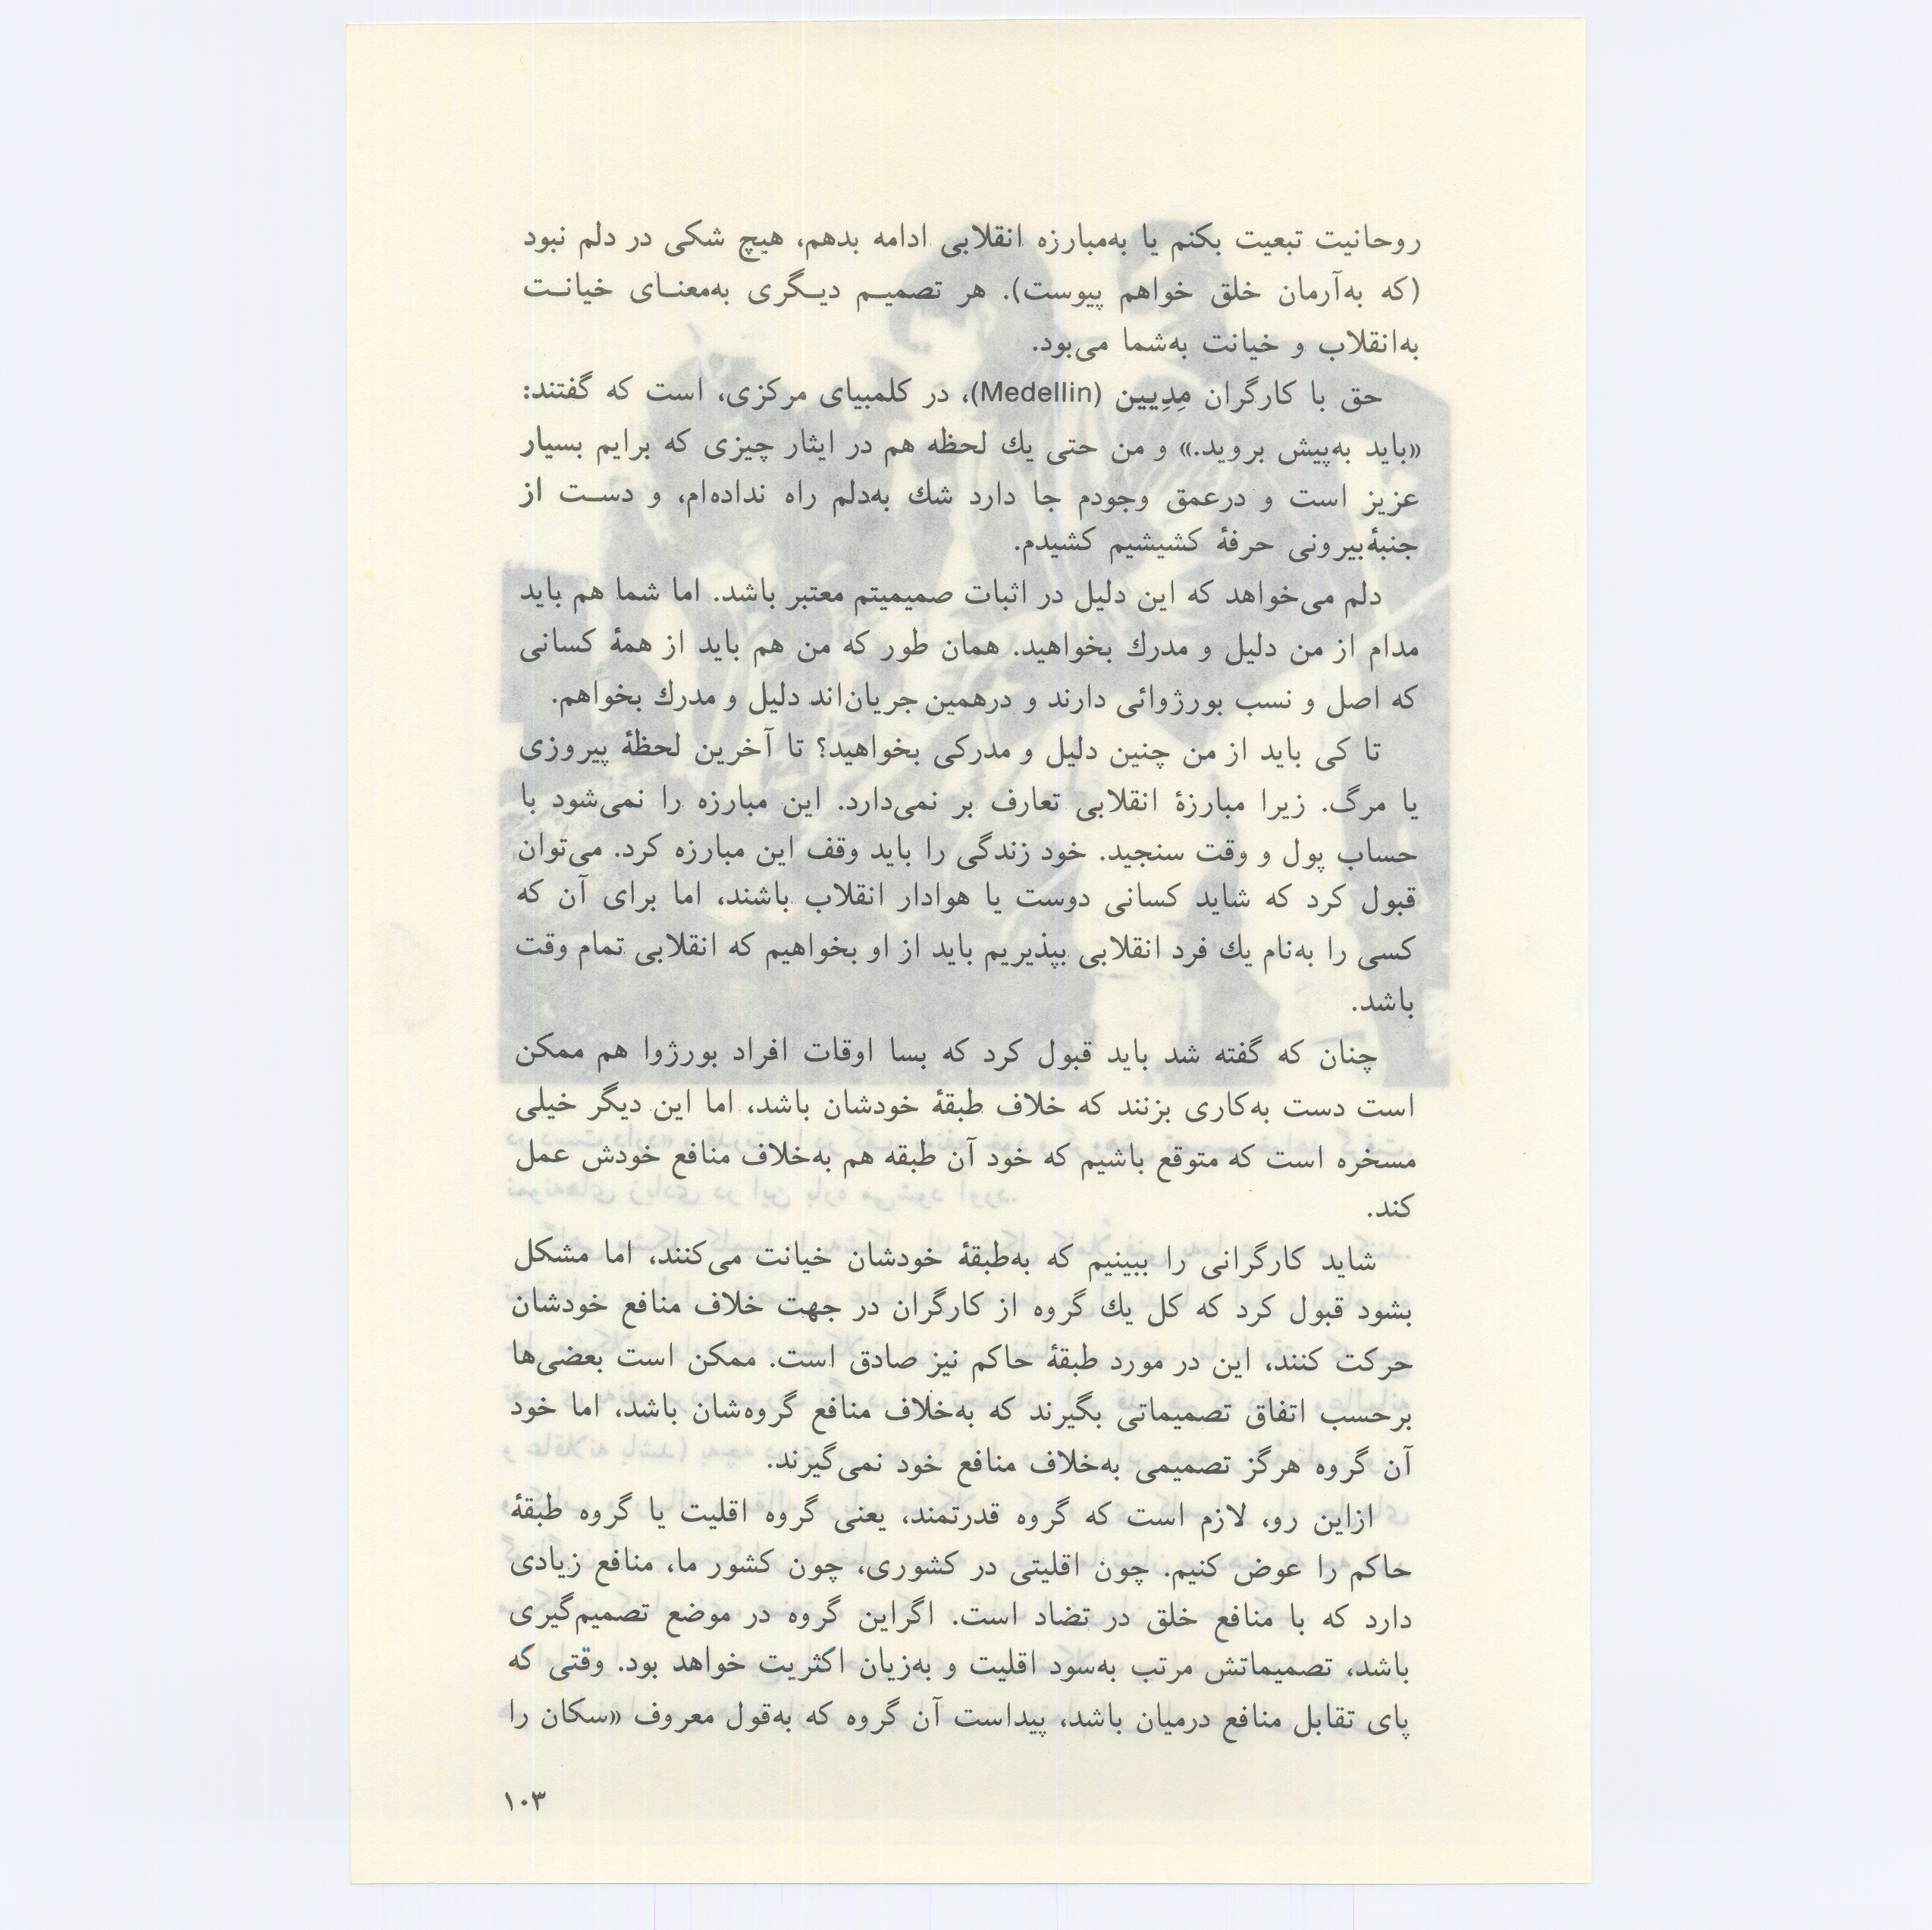 روحانیت تبعیت بکنم یا به‌مبارزه انقلابی ادامه بدهم، هیچ شکی در دلم نبود
(که به‌آرمان خلق خواهم پیوست). هر تصمیـم دیـگری به‌معنـای خیانـت
به‌انقلاب و خیانت به‌شما می‌بود.
حق با کارگران مِدِیین (Medellin)، در کلمبیای مرکزی، است که گفتند:
«باید به‌پیش بروید.» و من حتی یك لحظه هم در ایثار چیزی که برایم بسیار
عزیز است و درعمق وجودم جا دارد شك به‌دلم راه نداده‌ام، و دسـت از
جنبهٔ‌بیرونی حرفهٔ کشیشیم کشیدم.
دلم می‌خواهد که این دلیل در اثبات صمیمیتم معتبر باشد. اما شما هم باید
مدام از من دلیل و مدرك بخواهید. همان طور که من هم باید از همهٔ کسانی
که اصل و نسب بورژوائی دارند و درهمین جریان‌اند دلیل و مدرك بخواهم.
تا کی باید از من چنین دلیل و مدرکی بخواهید؟ تا آخرین لحظهٔ پیروزی
یا مرگ. زیرا مبارزهٔ انقلابی تعارف بر نمی‌دارد. این مبارزه را نمی‌شود با
حساب پول و وقت سنجید. خود زندگی را باید وقف این مبارزه کرد. می‌توان
قبول کرد که شاید کسانی دوست یا هوادار انقلاب باشند، اما برای آن که
کسی را به‌نام یك فرد انقلابی بپذیریم باید از او بخواهیم که انقلابی تمام وقت
باشد.
چنان که گفته شد باید قبول کرد که بسا اوقات افراد بورژوا هم ممکن
است دست به‌کاری بزنند که خلاف طبقهٔ خودشان باشد، اما این دیگر خیلی
مسخره است که متوقع باشیم که خود آن طبقه هم به‌خلاف منافع خودش عمل
کند.
شاید کارگرانی را ببینیم که به‌طبقهٔ خودشان خیانت می‌کنند، اما مشکل
بشود قبول کرد که کل یك گروه از کارگران در جهت خلاف منافع خودشان
حرکت کنند، این در مورد طبقهٔ حاکم نیز صادق است. ممکن است بعضی‌ها
برحسب اتفاق تصمیماتی بگیرند که به‌خلاف منافع گروه‌شان باشد، اما خود
آن گروه هرگز تصمیمی به‌خلاف منافع خود نمی‌گیرند.
ازاین رو، لازم است که گروه قدرتمند، یعنی گروه اقلیت یا گروه طبقهٔ
حاکم را عوض کنیم. چون اقلیتی در کشوری، چون کشور ما، منافع زیادی
دارد که با منافع خلق در تضاد است. اگراین گروه در موضع تصمیم‌گیری
باشد، تصمیماتش مرتب به‌سود اقلیت و به‌زیان اکثریت خواهد بود. وقتی که
پای تقابل منافع درمیان باشد، پیداست آن گروه که به‌قول معروف «سکان را
۱۰۳